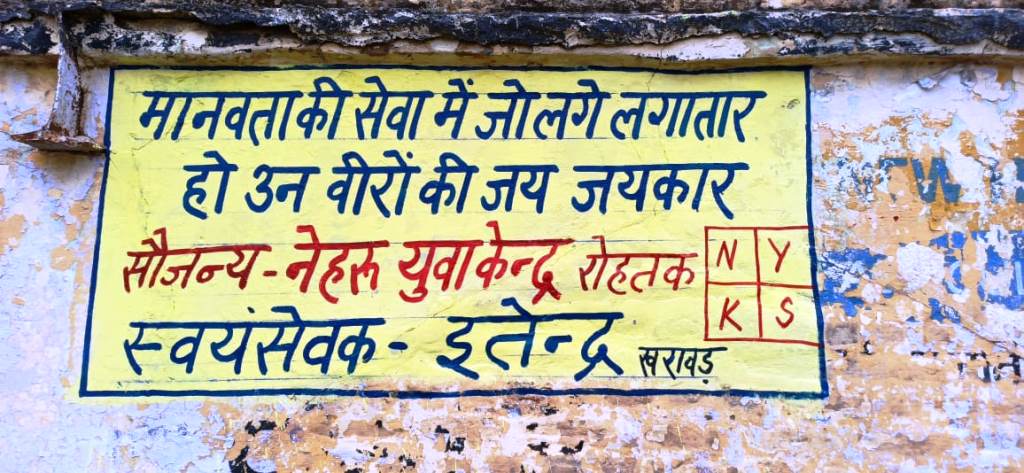 मानवता की सेवा में जो लगे लगातार
हो उन वीरों की जय जयकार
सौजन्य - नेहरू युवा केन्द्र रोहतक
N Y
K S
स्वयंसेवक - इतेन्द्र खरावड़